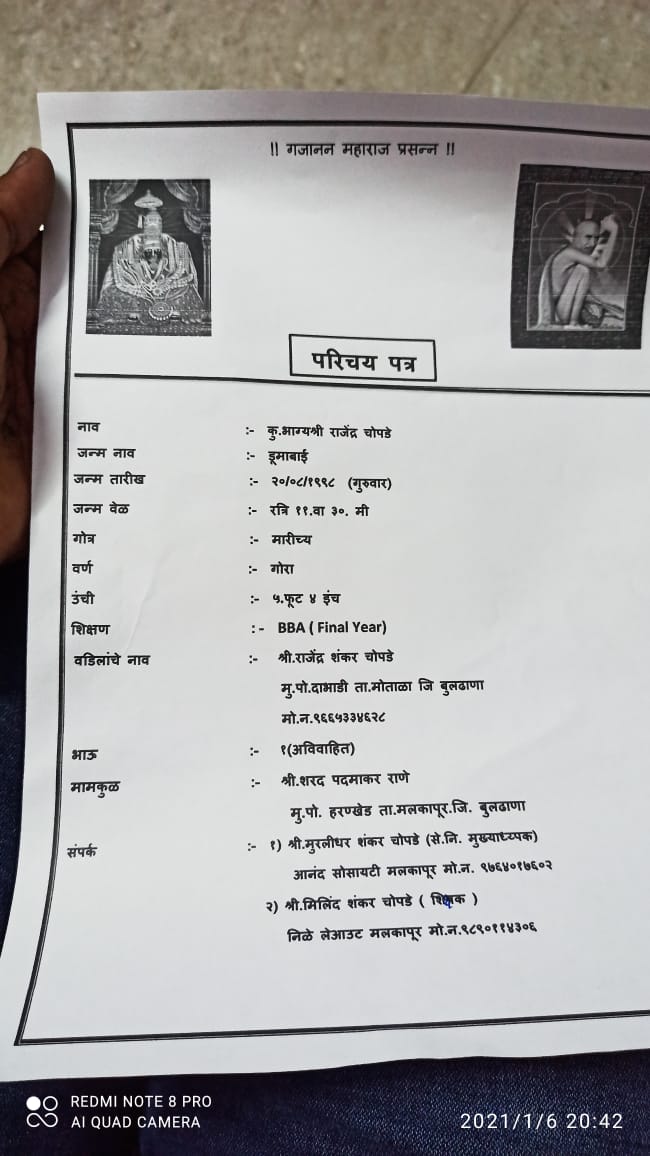 !! गजानन महाराज प्रसन्न !!
परिचय पत्र
नाव :- कु.भाग्यश्री राजेंद्र चोपडे
जन्म नाव :- डूमाबाई
जन्म तारीख :- २०/०८/१९९८ (गुरुवार)
जन्म वेळ :- रत्रि ११.वा ३०. मी
गोत्र :- मारीच्य
वर्ण :- गोरा
उंची :- ५.फूट ४ इंच
शिक्षण :- BBA ( Final Year)
वडिलांचे नाव :- श्री.राजेंद्र शंकर चोपडे
मु.पो.दाभाडी ता.मोताळा जि बुलढाणा
मो.न.९६६५३३४६२८
भाऊ :- १(अविवाहित)
मामकुळ :- श्री.शरद पदमाकर राणे
मु.पो. हरणखेड ता.मलकापूर.जि. बुलढाणा
संपर्क :- १) श्री.मुरलीधर शंकर चोपडे (से.नि. मुख्याध्य्पक)
आनंद सोसायटी मलकापूर मो.न. ९७६४०१७६०२
२) श्री.मिलिंद शंकर चोपडे ( शिक्षक )
निळे लेआउट मलकापूर मो.न.९८९०११४३०६
REDMI NOTE 8 PRO
AI QUAD CAMERA
2021/1/6 20:42